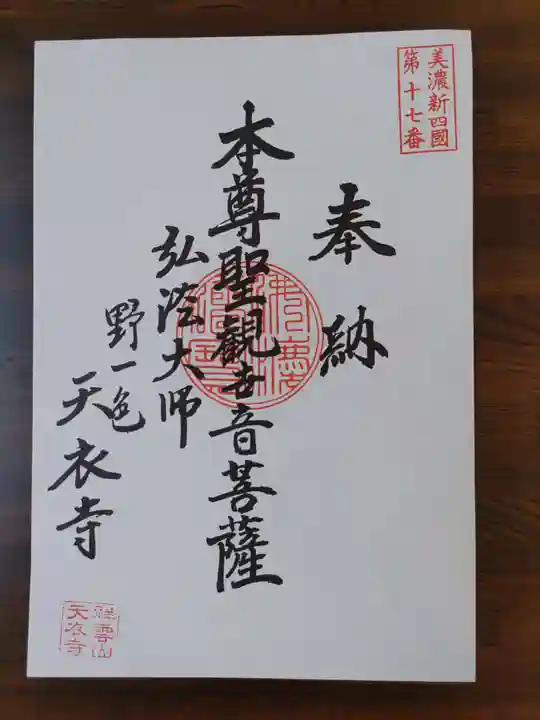 美濃新四國
第十七番
奉納
本尊聖観世音菩薩
弘法大师
野一色
天衣寺
祥雲山
天衣寺